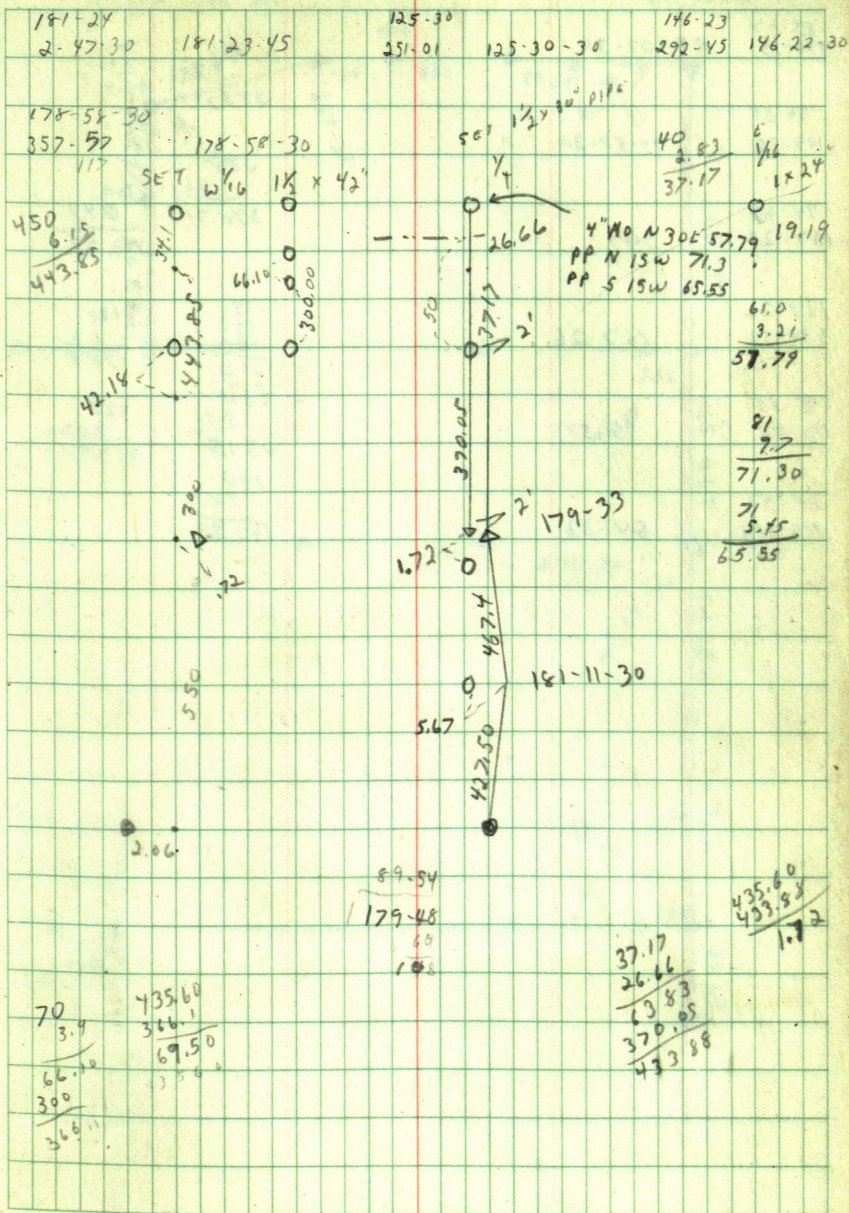 181-24
2-47-30 181-23-45
125-30
251-01 125-30-30
146-23
292-45 146-22-30
178-58-30
357-57 178-58-30
117
SET W 1/16 1 1/2 x 42"
SET 1 1/2 x 30" PIPE
1/4
40
2.83
37.17
E
1/16
1 x 24"
19.19
450
6.15
443.85
34.1
66.10
300.00
443.85
42.18
300
.72
550
2.06
26.66
.50
37.17
2'
4" WO N 30E 57.79
PP N 15W 71.3
PP S 15W 65.55
61.0
3.21
57.79
81
9.7
71.30
71
5.45
65.55
370.05
2'
179-33
1.72
467.4
181-11-30
5.67
427.50
89-54
179-48
60
108
435.60
433.88
1.72
37.17
26.66
63.83
370.05
433.88
70
3.9
66.10
300
366.1
435.60
366.1
69.50